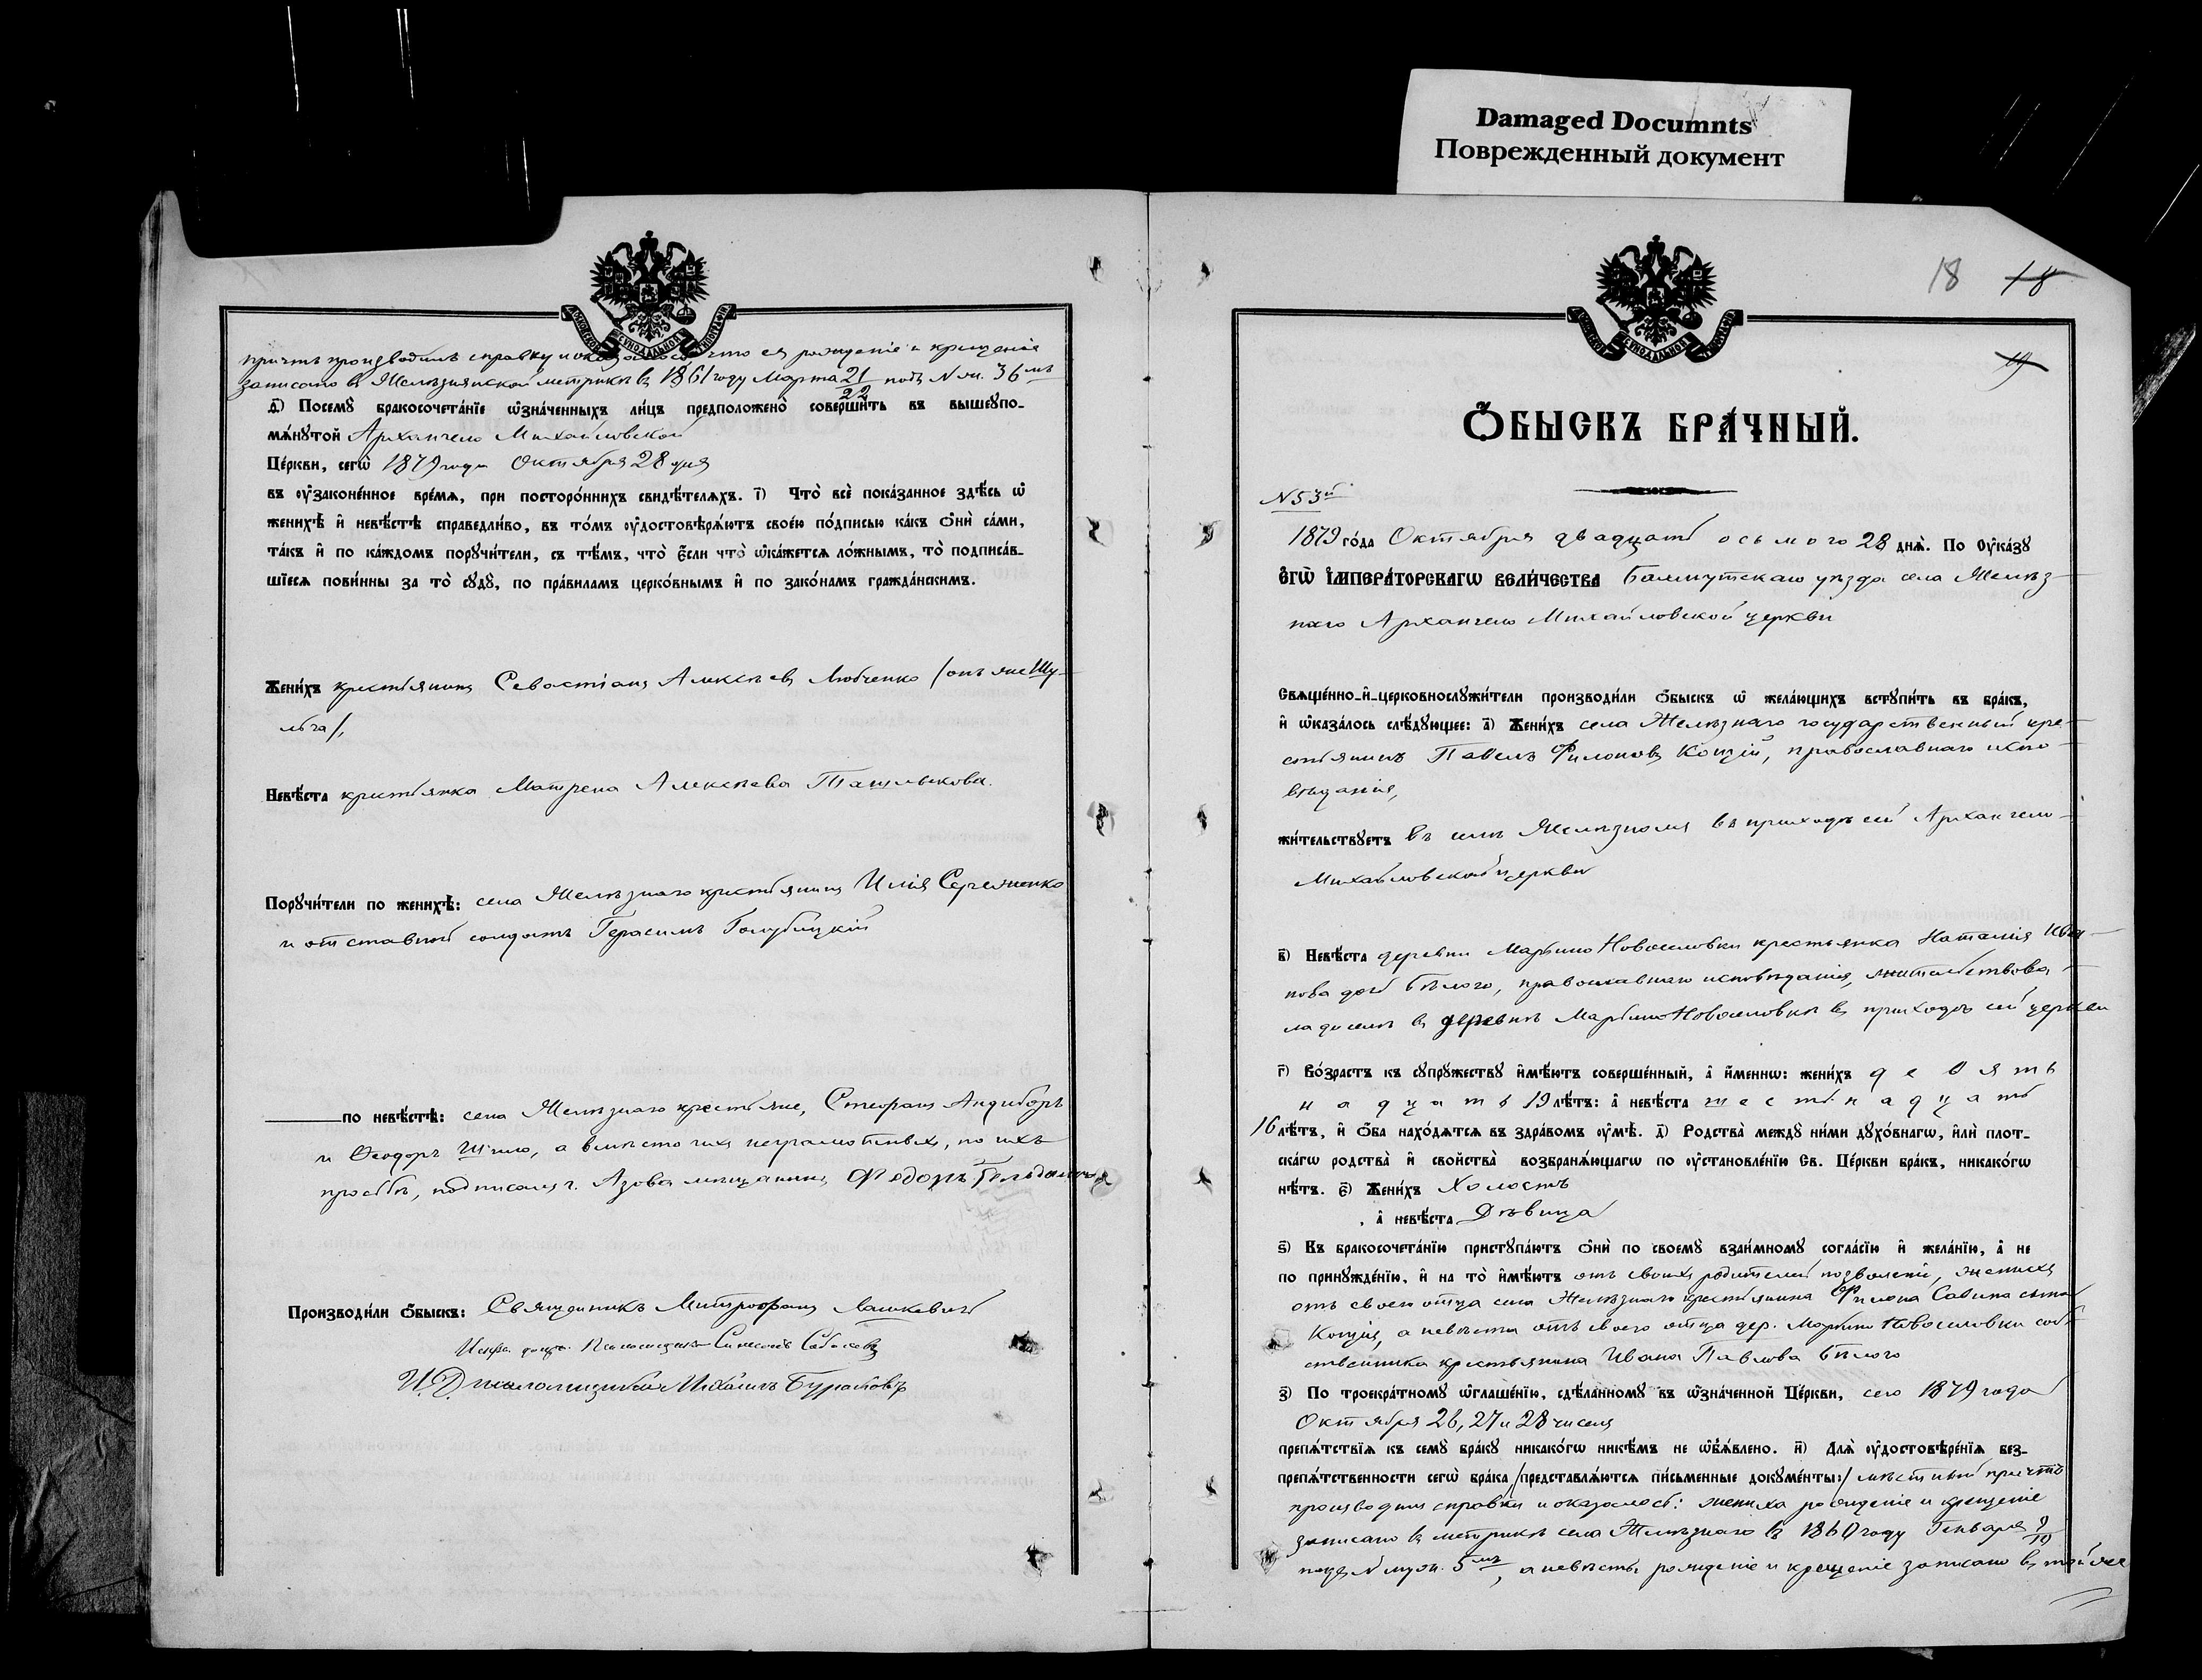 Damaged Documnts
Поврежденный документ
причтъ производилъ справку и оказалось, что ея рожденіе и крещеніе
записано въ Желѣзнянской метрикѣ въ 1861 году Марта 21/22 подъ № ж. 36мъ
д҃) Посемꙋ̀ бракосочета́нїе ѡ҆зна́ченныхъ ли́цъ предположено̀ соверши́ть въ вышеꙋпо-
мѧ́нꙋтой Архангело Михайловской
Це́ркви, сегѡ̀ 1879 года Октября 28 дня
въ ᲂу҆зако́ненное вре́мѧ, при посторо́ннихъ свидѣ́телѧхъ. і҃) Что̀ всѐ пока́занное здѣ́сь ѡ҆
женихѣ̀ и҆ невѣ́стѣ справедли́во, въ то́мъ ᲂу҆достовѣрѧ́ютъ свое́ю по́дписью ка́къ ѻ҆нѝ са́ми,
та́къ и҆ по ка́ждомъ порꙋчи́тели, съ тѣ́мъ, что̀ є҆́сли что̀ ѡ҆ка́жетсѧ ло́жнымъ, то̀ подписа́в-
шїесѧ пови́нны за то̀ сꙋдꙋ̀, по пра́виламъ церко́внымъ и҆ по зако́намъ гражда́нскимъ.
Жени́хъ крестьянинъ Севастіанъ Алексѣевъ Любченко /онъ же Шу-
льга/,
Невѣ́ста крестьянка Матрена Алексѣева Ташлыкова.
Порꙋчи́тели по женихѣ̀: села Желѣзнаго крестьянинъ Илія Сергіенко
и отставной солдатъ Герасимъ Голубицкій
по невѣ́стѣ: села Желѣзнаго крестьяне, Стефанъ Андиборъ
и Ѳеодоръ Шило, а вмѣсто ихъ неграмотныхъ, по ихъ
просьбѣ, подписался г. Азова мѣщанинъ Федоръ
Производи́ли ѻ҆́быскъ: Священникъ Митрофанъ Лашкевичъ
Псаломщикъ
И.Д. псаломщика Михаилъ Бураковъ
18 18
19
Ѻ҆́БЫСКЪ БРА́ЧНЫЙ.
№ 53й
1879 го́да Октября двадцать осьмого 28 днѧ̀. По Оу҆ка́зꙋ
Є҆ГѠ̀ І҆МПЕРА́ТОРСКАГѠ ВЕЛИ́ЧЕСТВА Бахмутскаго уѣзда села Желѣз-
наго Архангело Михайловской церкви
Свѧще́нно-и҆-церковнослꙋжи́тели производи́ли ѻ҆́быскъ ѡ҆ жела́ющихъ встꙋпи́ть въ бра́къ,
и҆ ѡ҆каза́лось слѣ́дꙋющее: а҃) Жени́хъ села Желѣзнаго государственный кре-
стьянинъ Павелъ Филоновъ Коцій, православнаго испо-
вѣданія,
жи́тельствꙋетъ въ селѣ Желѣзномъ въ приходѣ сей Архангело-
Михайловской церкви
в҃) Невѣ́ста деревни Марьино Новоселовки крестьянка Наталія Ива-
нова дочь Бѣлого, православнаго исповѣданія, жительствова-
ла доселѣ въ деревнѣ Марьино Новоселовкѣ въ приходѣ сей церкви
г҃) Во́зрастъ къ сꙋпрꙋ́жествꙋ и҆мѣ́ютъ соверше́нный, а҆ и҆́меннѡ: жени́хъ девять
надцать 19 лѣ́тъ: а҆ невѣ́ста шестнадцать
16 лѣ́тъ, и҆ ѻ҆́ба нахо́дѧтсѧ въ здра́вомъ ᲂу҆мѣ̀. д҃) Родства̀ междꙋ̀ ни́ми дꙋхо́внагѡ, и҆лѝ плот-
ска́гѡ родства̀ и҆ свойства̀ возбранѧ́ющагѡ по ᲂу҆становле́нїю Св. Це́ркви бра́къ, никако́гѡ
нѣ́тъ. є҃) Жени́хъ Холостъ
, а҆ невѣ́ста Дѣвица
ѕ҃) Къ бракосочета́нїю пристꙋпа́ютъ ѻ҆нѝ по своемꙋ̀ взаи́мномꙋ согла́сїю и҆ жела́нїю, а҆ не
по принꙋжде́нїю, и҆ на то̀ и҆мѣ́ютъ отъ своихъ родителей позволеніе, женихъ
отъ своего отца села Желѣзнаго крестьянина Филона Савина сына
Коція, а невѣста отъ своего отца дер. Марьино Новоселовки соб-
ственника крестьянина Ивана Павлова Бѣлого
з҃) По троекра́тномꙋ ѡ҆глаше́нїю, сдѣ́ланномꙋ въ ѡ҆зна́ченной Це́ркви, сего 1879 года
Октября 26, 27 и 28 чиселъ
препѧ́тствїѧ къ семꙋ̀ бра́кꙋ никако́гѡ никѣ́мъ не ѡ҆б̾ѧ́влено. и҃) Длѧ̀ ᲂу҆достовѣре́нїѧ без-
препѧ́тственности сегѡ̀ бра́ка /представлѧ́ютсѧ пи́сьменные докꙋме́нты:/ мѣстный причтъ
производилъ справки и оказалось: жениха рожденіе и крещеніе
записано въ метрикѣ села Желѣзнаго въ 1860 году Генваря 9/10
подъ № муж. 5мъ, а невѣсты рожденіе и крещеніе записано въ той же